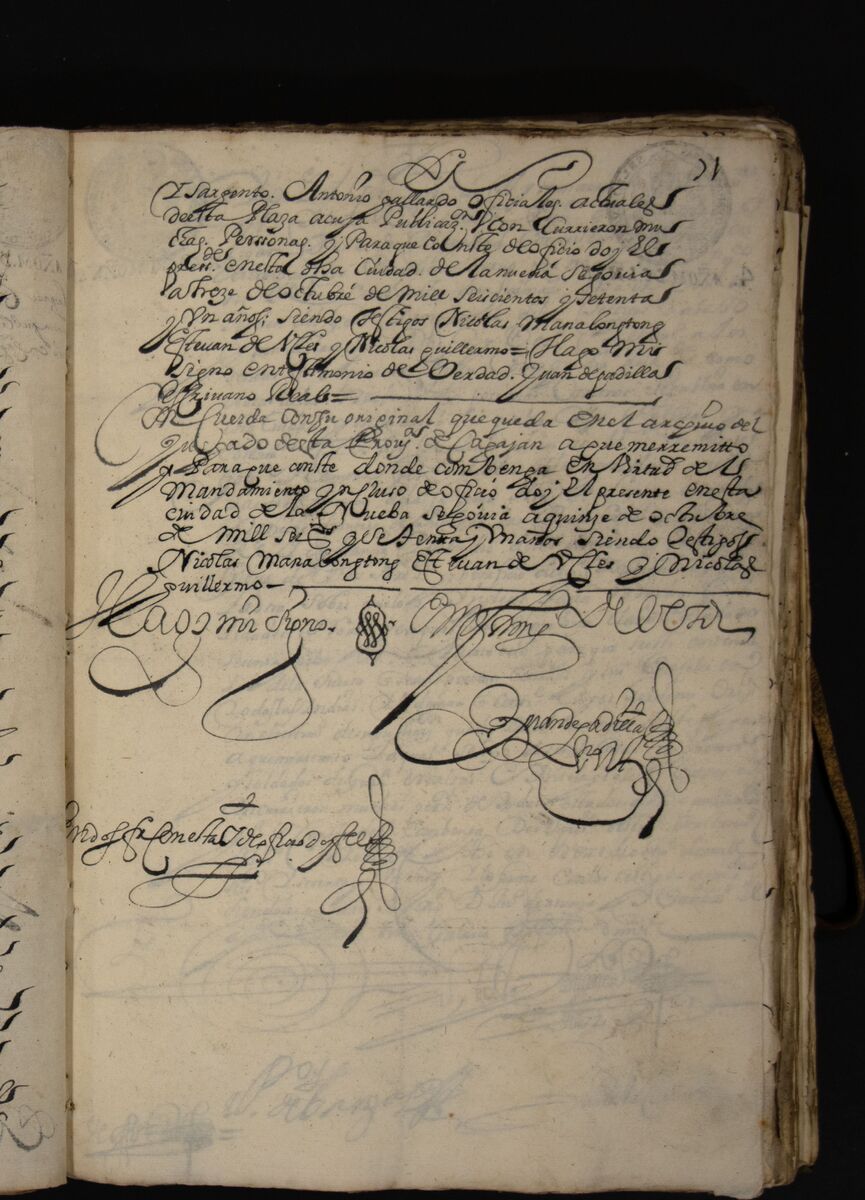 71
Y sargento. Antonio gallardo oficiales. actuales
de esta Plaza a cuya Publicaz.on Con Currieron mu
chas. Personas. y Para que Conste de oficio doy El
press.te en esta dha Ciudad. de la nueba segouia
a treze de octubre de mill seiscientos y setenta
y Vn años; siendo testigos Nicolas Manalongtong
Esteuan de y Nicolas guillermo = Hago Mi
signo en testimonio de Verdad. Juan de padilla
escriuano Real =
Con Cuerda Con su original que queda en el archiuo del
Juzgado desta Prou.a de Cagayan a que me rremitto
y Para que conste donde combenga en Virtud de el
Mandamiento ynCluso de oficio doy El presente en esta
ciudad de la Nueba Segouia a quinze de octubre
de mill seis.s y setenta y Vn años siendo testigos
Nicolas Manalongtong Esteuan de y Nicolas
guillermo
Hago mi signo. en testimonio de Verdad
Juan de padilla